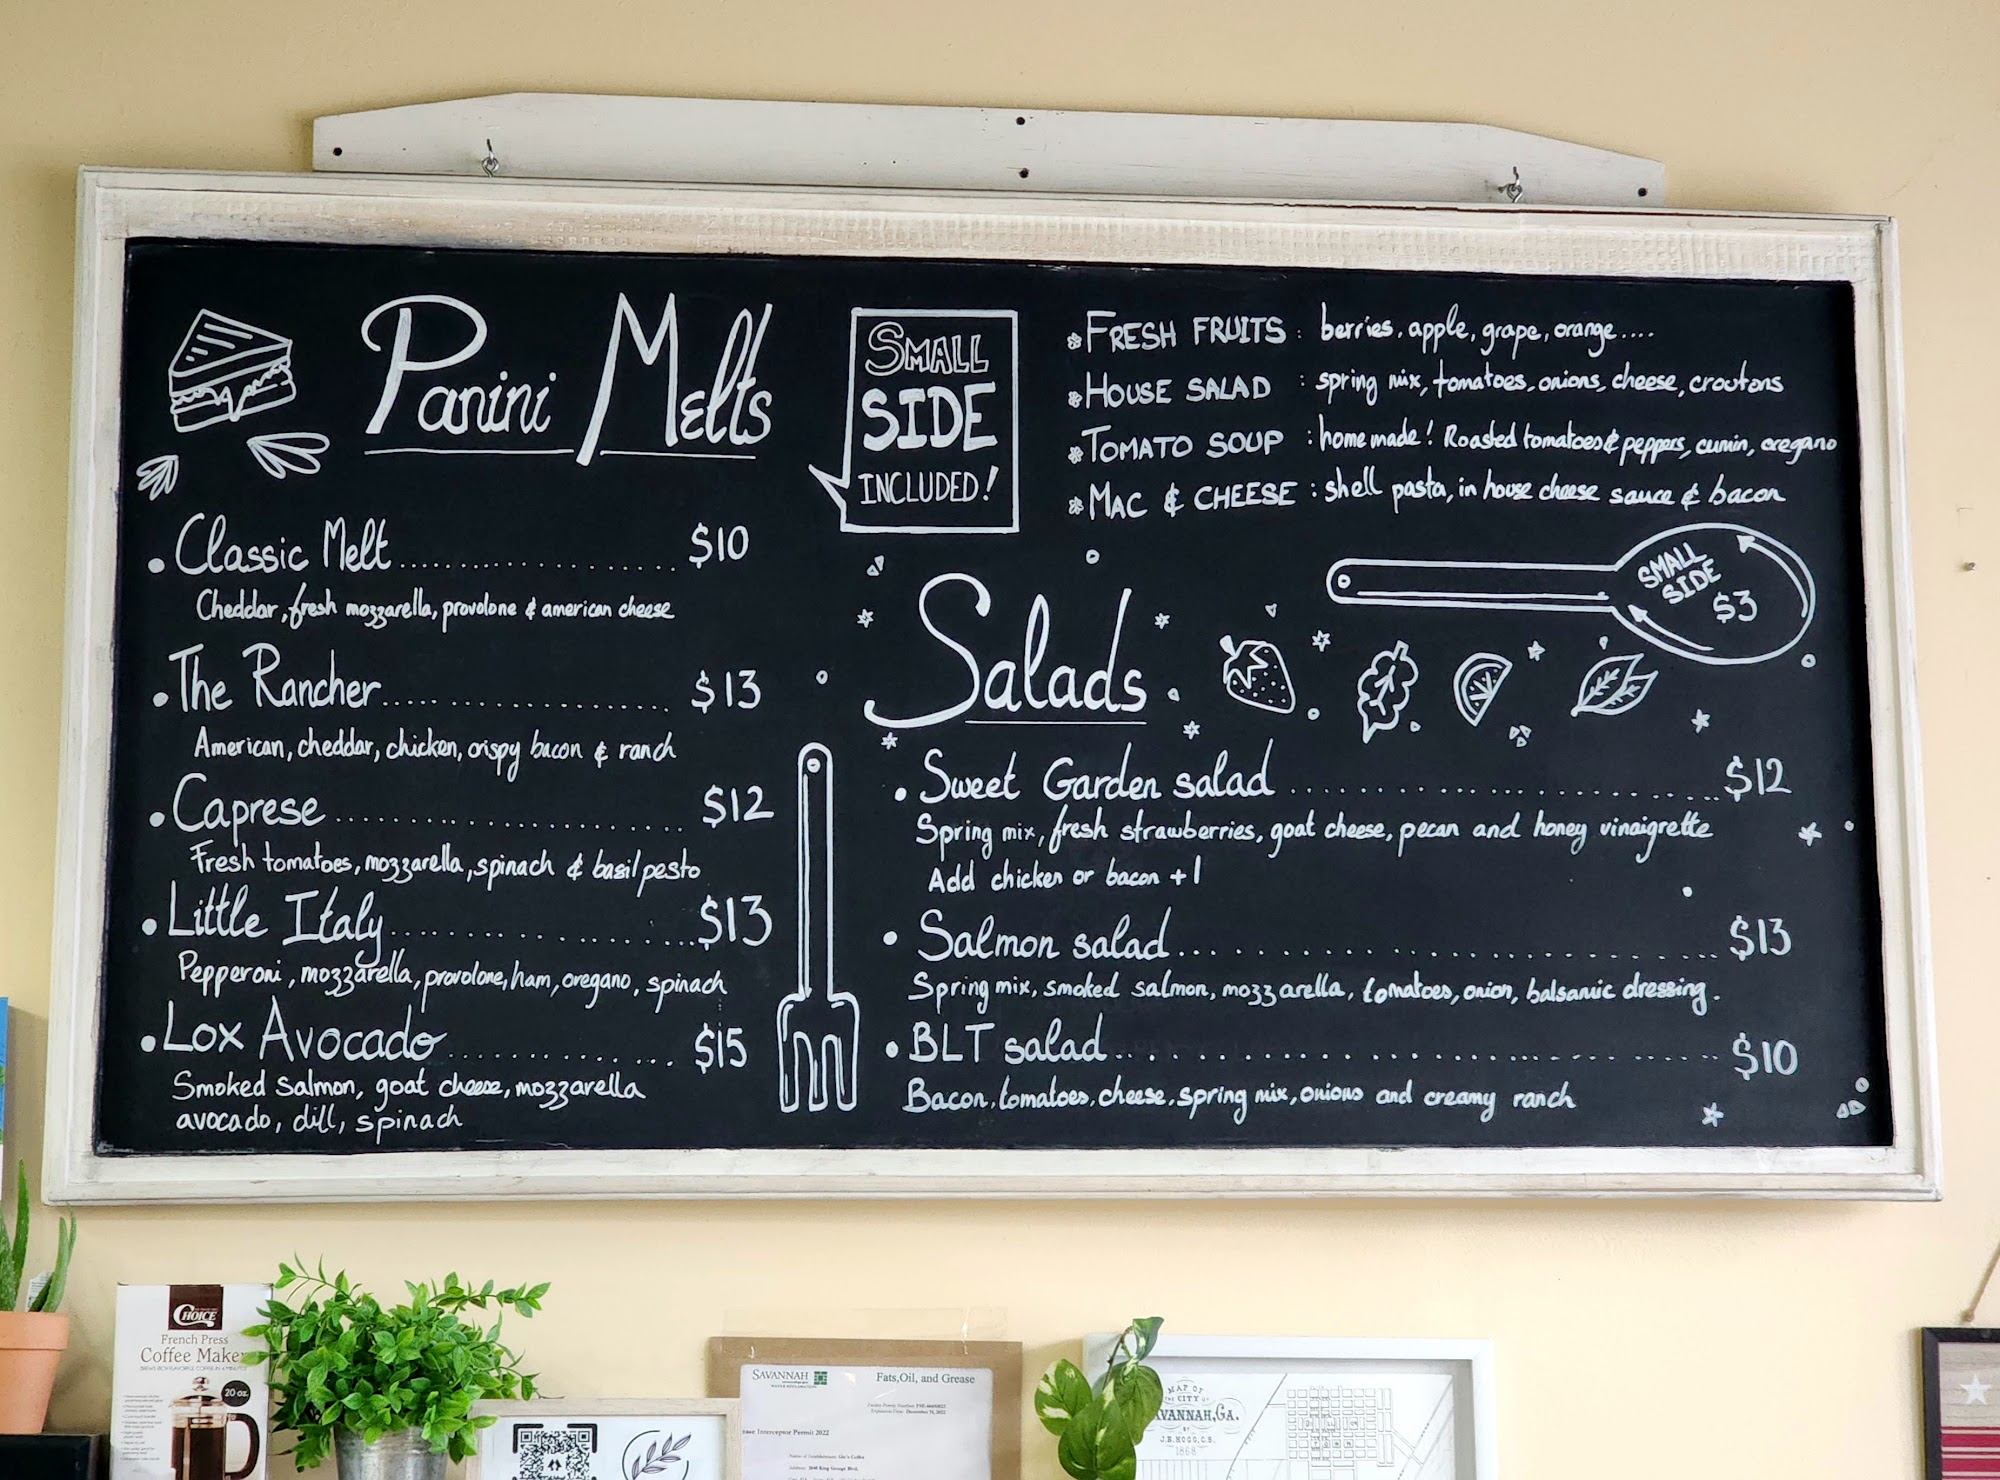 Panini Melts
• Classic Melt .................... $10
Cheddar, fresh mozzarella, provolone & american cheese
• The Rancher .................... $13
American, cheddar, chicken, crispy bacon & ranch
• Caprese .................... $12
Fresh tomatoes, mozzarella, spinach & basil pesto
• Little Italy .................... $13
Pepperoni, mozzarella, provolone, ham, oregano, spinach
• Lox Avocado .................... $15
Smoked salmon, goat cheese, mozzarella
avocado, dill, spinach
SMALL
SIDE
INCLUDED!
FRESH FRUITS : berries, apple, grape, orange....
HOUSE SALAD : spring mix, tomatoes, onions, cheese, croutons
TOMATO SOUP : homemade! Roasted tomatoes & peppers, cumin, oregano
MAC & CHEESE : shell pasta, in house cheese sauce & bacon
SMALL
SIDE
$3
Salads
• Sweet Garden salad .................... $12
Spring mix, fresh strawberries, goat cheese, pecan and honey vinaigrette
Add chicken or bacon +1
• Salmon salad .................... $13
Spring mix, smoked salmon, mozzarella, tomatoes, onion, balsamic dressing.
• BLT salad .................... $10
Bacon, tomatoes, cheese, spring mix, onions and creamy ranch
CHOICE
French Press
Coffee Maker
20 oz.
SAVANNAH
Fats,Oil, and Grease
Interceptor Permit 2022
MAP OF
THE CITY OF
SAVANNAH, GA.
BY
J.B. HOGG, C.S.
1868